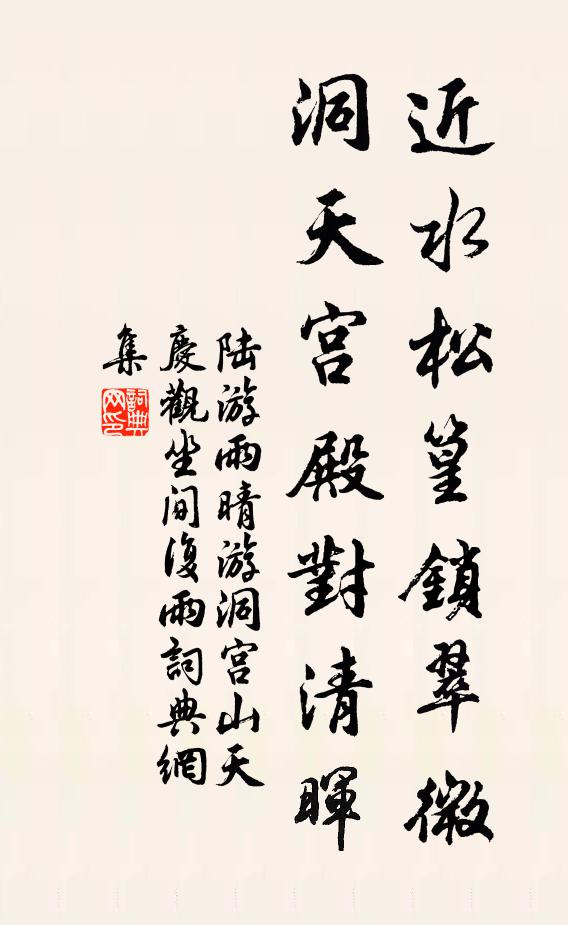 近水松篁鎖翠微
洞天宮殿對清暉
陆游雨晴游洞宮山天
慶觀坐间復雨詞典網
集
詞典
网印